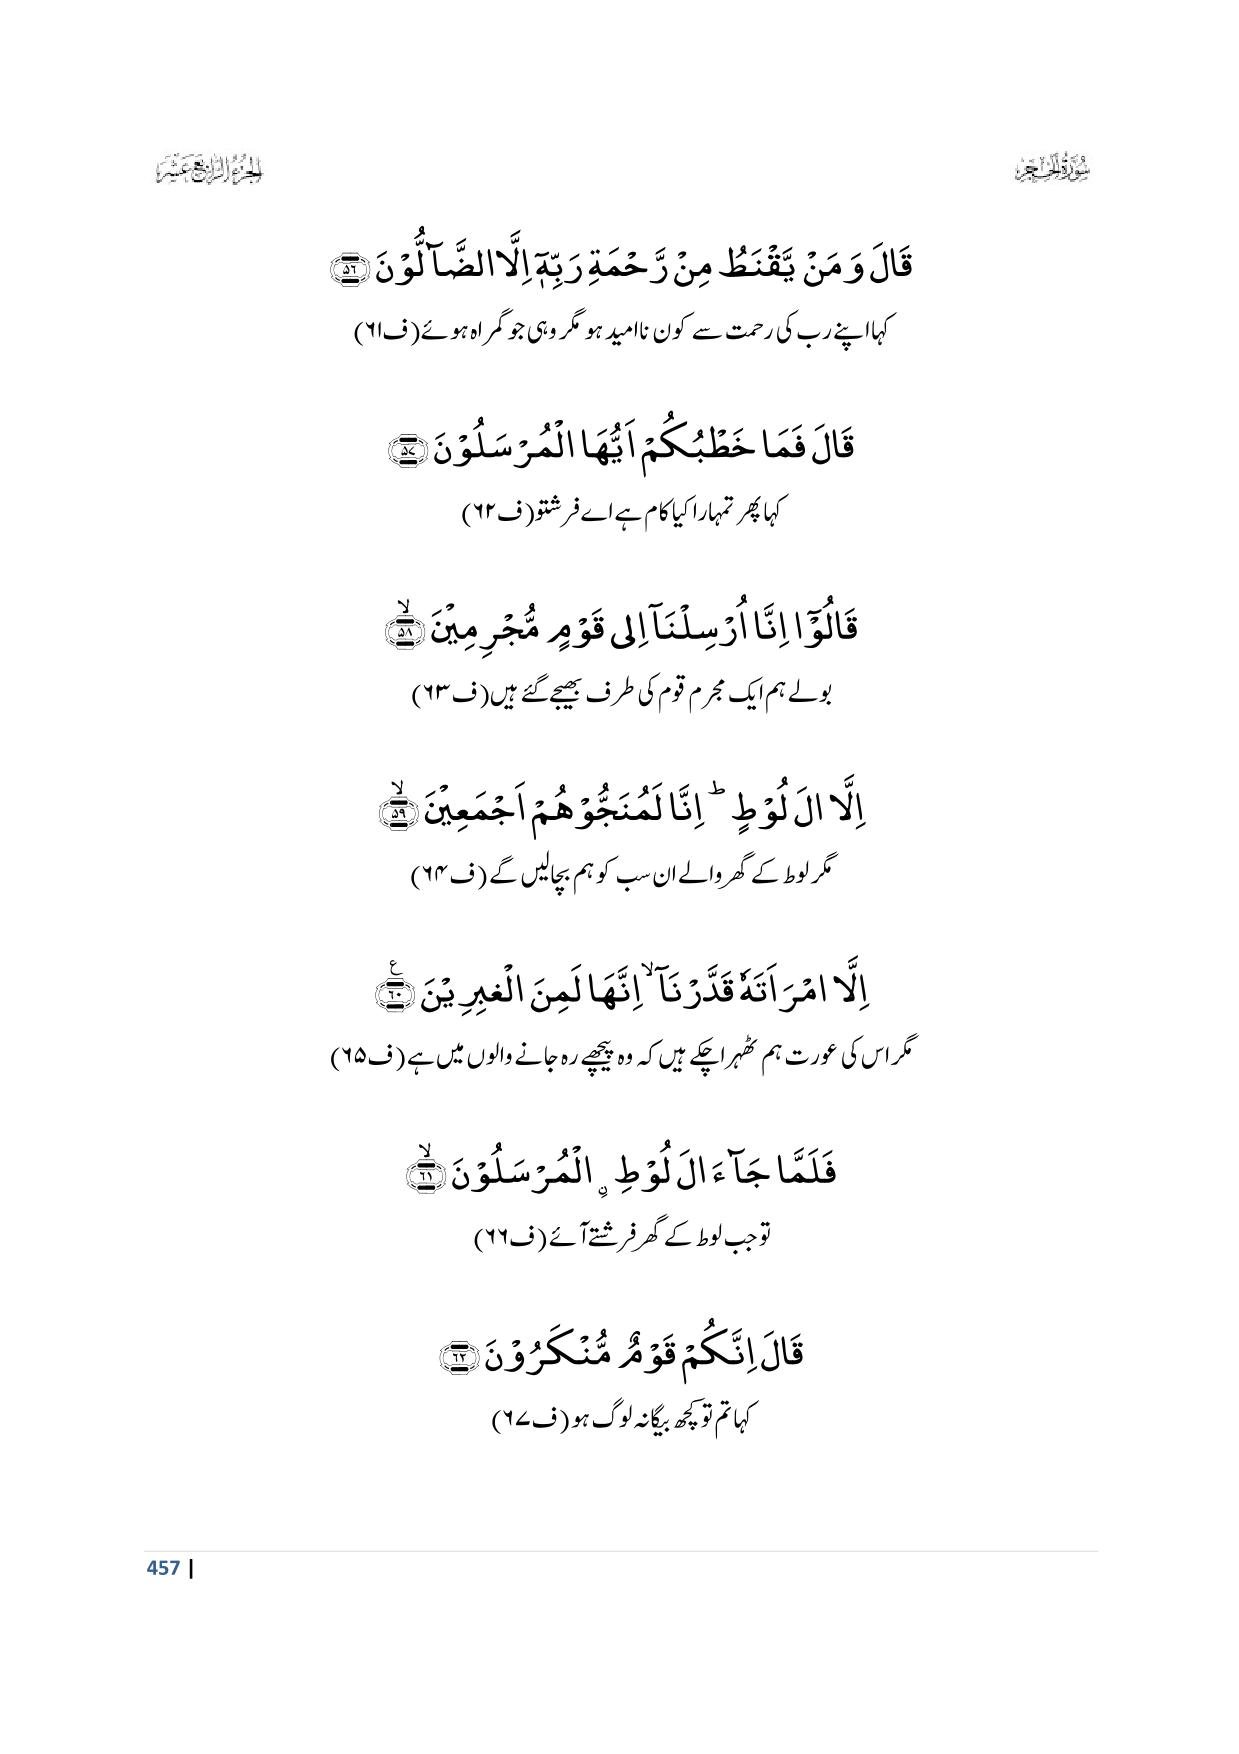 سُوْرَةُ الْحِجْر
الجزء الرابع عشر
قَالَ وَ مَنْ یَّقْنَطُ مِنْ رَّحْمَةِ رَبِّهٖۤ اِلَّا الضَّآلُّوْنَ ﴿۵۶﴾
کہا اپنے رب کی رحمت سے کون ناامید ہو مگر وہی جو گمراہ ہوئے (ف۶۱)
قَالَ فَمَا خَطْبُكُمْ اَیُّهَا الْمُرْسَلُوْنَ ﴿۵۷﴾
کہا پھر تمہارا کیا کام ہے اے فرشتو (ف۶۲)
قَالُوْۤا اِنَّاۤ اُرْسِلْنَاۤ اِلٰى قَوْمٍ مُّجْرِمِیْنَۙ ﴿۵۸﴾
بولے ہم ایک مجرم قوم کی طرف بھیجے گئے ہیں (ف۶۳)
اِلَّاۤ اٰلَ لُوْطٍؕ اِنَّا لَمُنَجُّوْهُمْ اَجْمَعِیْنَۙ ﴿۵۹﴾
مگر لوط کے گھر والے ان سب کو ہم بچالیں گے (ف۶۴)
اِلَّا امْرَاَتَهٗ قَدَّرْنَاۤۙ اِنَّهَا لَمِنَ الْغٰبِرِیْنَ۠ ﴿۶۰﴾
مگر اس کی عورت ہم ٹھہراچکے ہیں کہ وہ پیچھے رہ جانے والوں میں ہے (ف۶۵)
فَلَمَّا جَآءَ اٰلَ لُوْطِ ﹰالْمُرْسَلُوْنَۙ ﴿۶۱﴾
تو جب لوط کے گھر فرشتے آئے (ف۶۶)
قَالَ اِنَّكُمْ قَوْمٌ مُّنْكَرُوْنَ ﴿۶۲﴾
کہا تم تو کچھ بیگانہ لوگ ہو (ف۶۷)
457 |